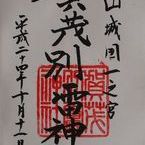 山城国一之宮
賀茂別雷神
平成二十四年十月十一